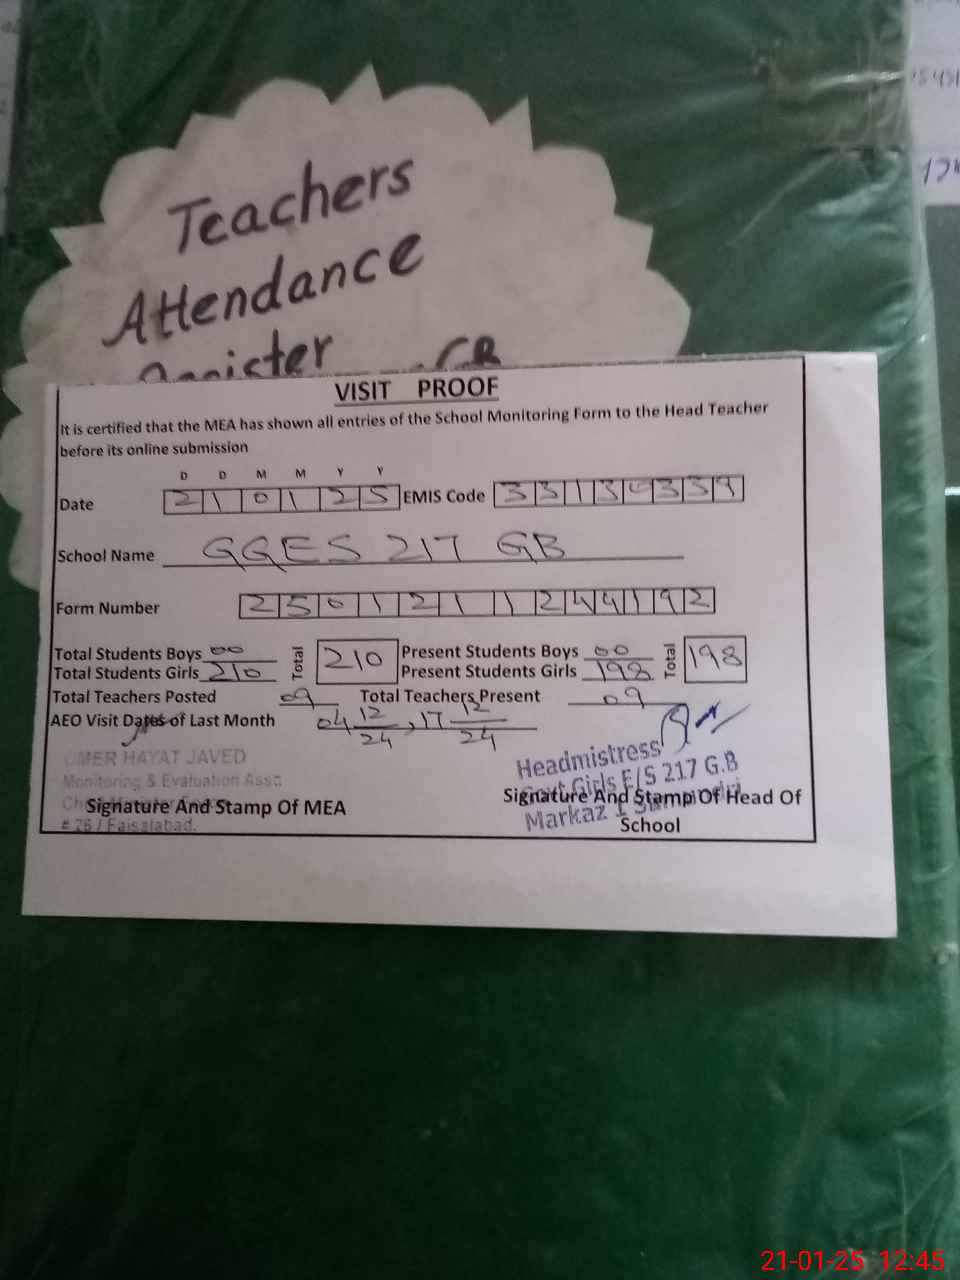 Teachers
Attendance
Register
VISIT PROOF
It is certified that the MEA has shown all entries of the School Monitoring Form to the Head Teacher
before its online submission
D D M M Y Y
Date 210125 EMIS Code 33130339
School Name GGES 217 GB
Form Number 250121124192
Total Students Boys 00 Total 210 Present Students Boys 00 Total 198
Total Students Girls 210 Present Students Girls 198
Total Teachers Posted 09 Total Teachers Present 09
AEO Visit Dates of Last Month 04 12/24, 17 12/24
OMER HAYAT JAVED
Monitoring & Evaluation Asst
# 76 / Faisalabad.
Signature And Stamp Of MEA
Headmistress
Govt Girls E/S 217 G.B
Markaz
Signature And Stamp Of Head Of
School
21-01-25 12:45